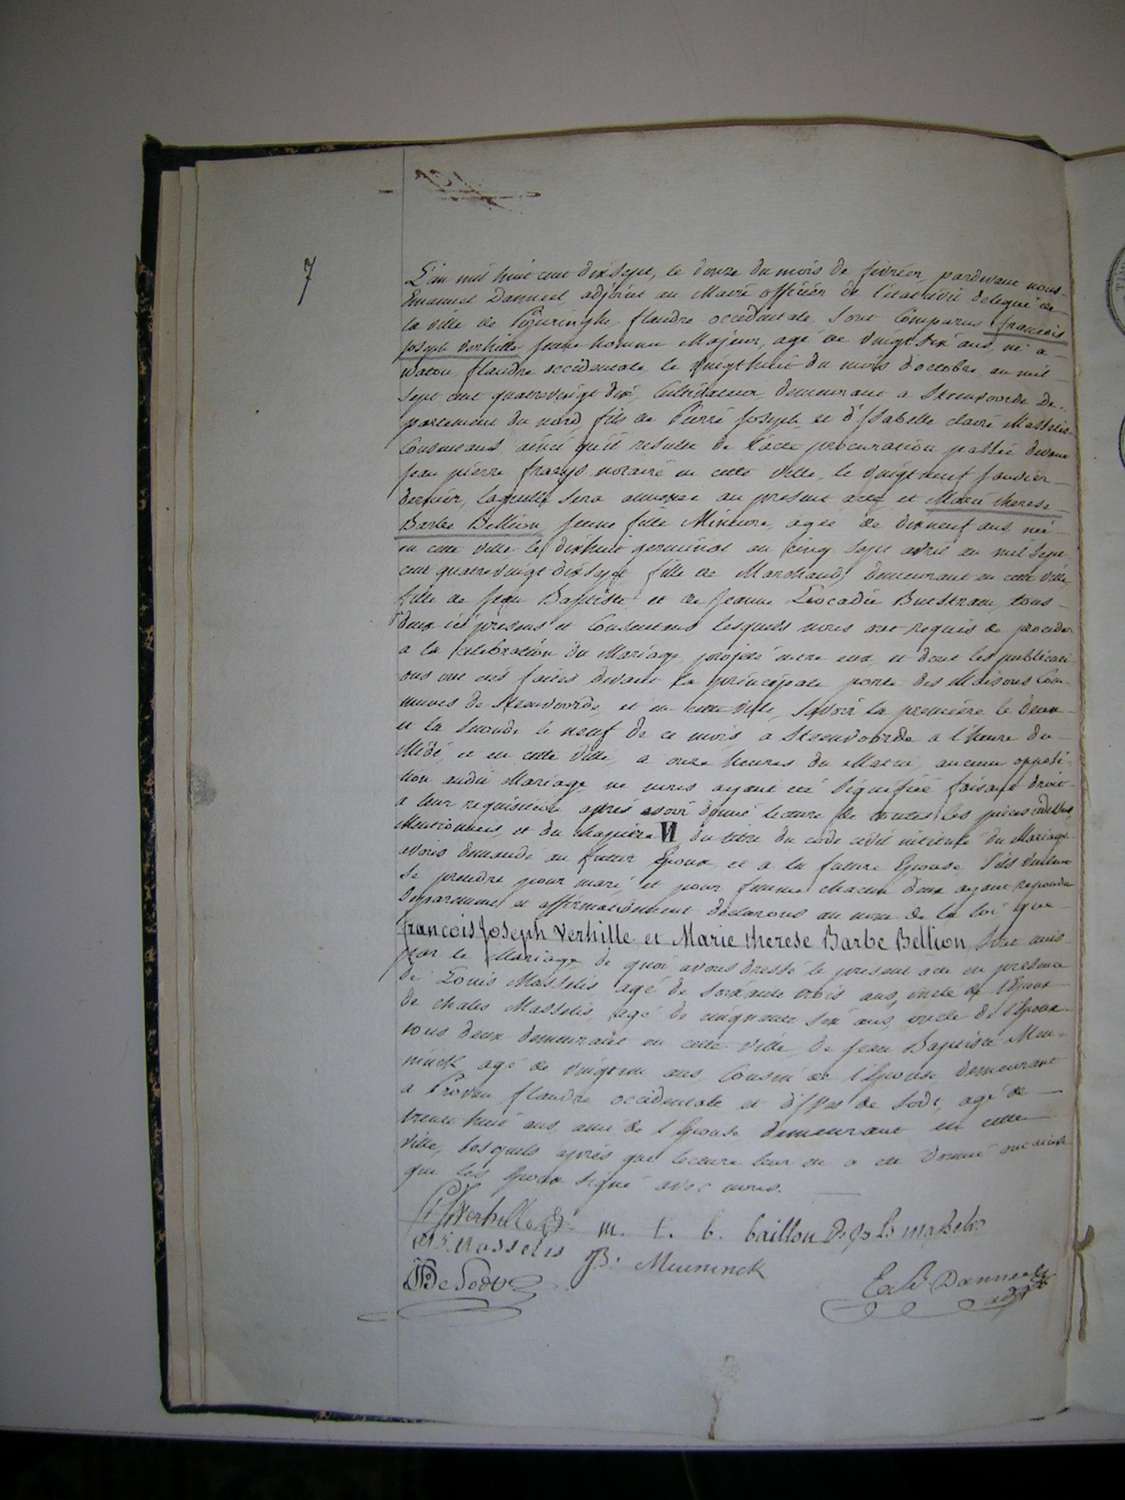 7
L'an mil huit cent dix sept, le douze du mois de février pardevant nous
Emanuel Danneel, adjoint au Maire officier de l'état civil delegué de
la ville de Poperinghe flandre occidentale, sont Comparus françois
Joseph Verhille jeune homme Majeur, agé de vingt six ans, né a
watou flandre occidentale le vingt huit du mois d'octobre an mil
sept cent quatre vingt dix, Cultivateur demeurant a Steenvoorde De-
partement du nord, fils de Pierre Joseph et d'Isabelle claire Masselis
Consentans ainsi qu'il resulte de l'acte procuration passée devant
jean pierre notaire en cette ville, le vingt neuf janvier
dernier, laquelle sera annexée au present acte, et Marie therese
Barbe Bellion, jeune fille Mineure, agée de dix neuf ans née
en cette ville le dix huit germinal an cinq sept avril an mil sept
cent quatre vingt dix sept fille de Marchand demeurant en cette ville,
fille de jean Baptiste et de jeanne Leocadie tous
deux ici présens et Consentans lesquels nous ont requis de proceder
a la celebration du Mariage projetté entre eux, et dont les publicati
ons ont été faites devant la principale porte des Maisons Com
munes de Steenvoorde, et en cette ville, Savoir la première le deux
et la seconde le neuf de ce mois, a Steenvoorde a l'heure du
Midi, et en cette ville, a onze heures du Matin, aucune opposi-
tion audit Mariage ne nous ayant été signifiée faisant droit
a leur requisition après avoir donné lecture de toutes les pièces
Mentionnées, et du Chapitre VI du titre du code civil intitulé du Mariage
avons demandé au futur Epoux et a la future Epouse s'ils veulent
se prendre pour mari et pour femme chacun d'eux ayant repondu
separement et affirmativement declarons au nom de la loi que
françois Joseph Verhille et Marie therese Barbe Bellion, sont unis
par le Mariage de quoi avons dressé le present acte en presence
de Louis Masselis agé de soixante trois ans, oncle de l'Epoux
de Masselis, agé de cinquante six ans, oncle de l'Epoux
tous deux demeurant en cette ville, de Jean Baptiste Meu-
ninck agé de ans, Cousin de l'Epouse demeurant
a Proven flandre occidentale et de Sodt, agé de
trente huit ans ami de l'Epouse demeurant en cette
ville, lesquels après que lecture leur en a été donné ont
que les Epoux signé avec nous.
Verhille m. t. b. baillon
Masselis JB. Meuninck
De Sodt Danneel
adjt